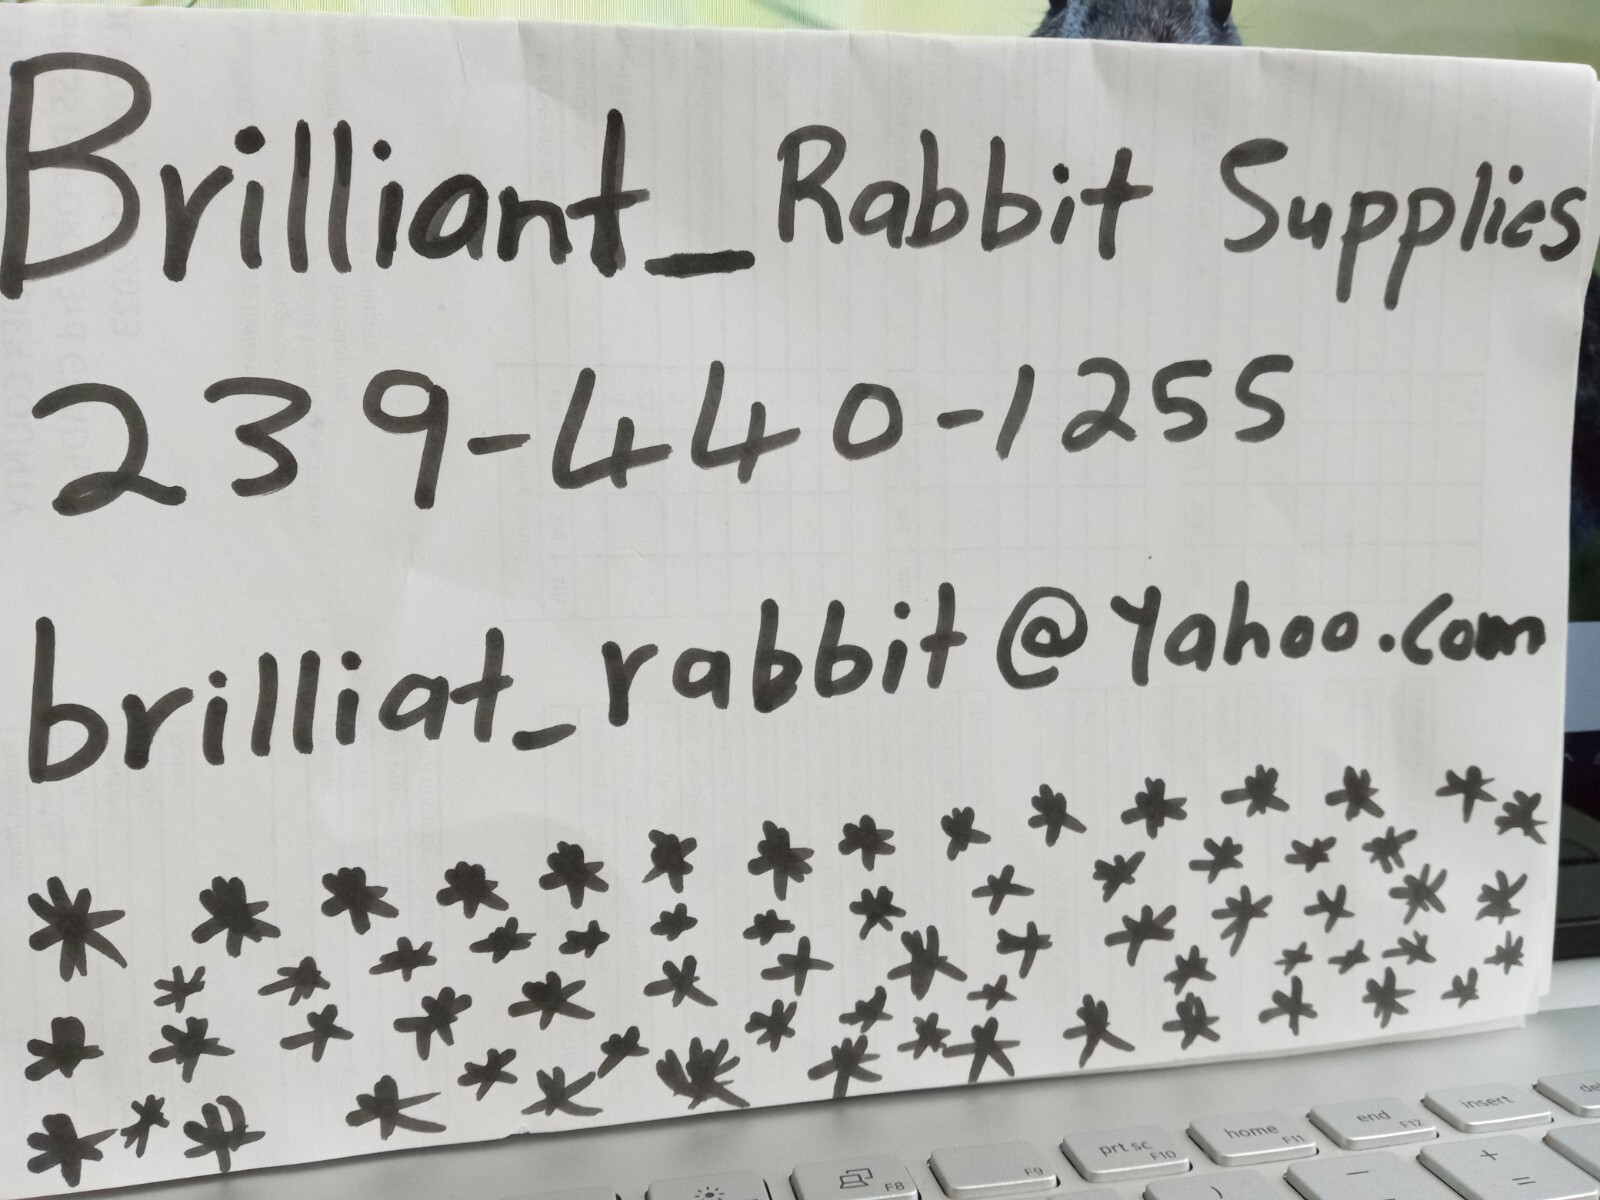 Brilliant_Rabbit Supplies
239-440-1255
brilliat_rabbit@Yahoo.com
prt sc F10
home F11
end F12
insert
del
F8
F9
- + =
)